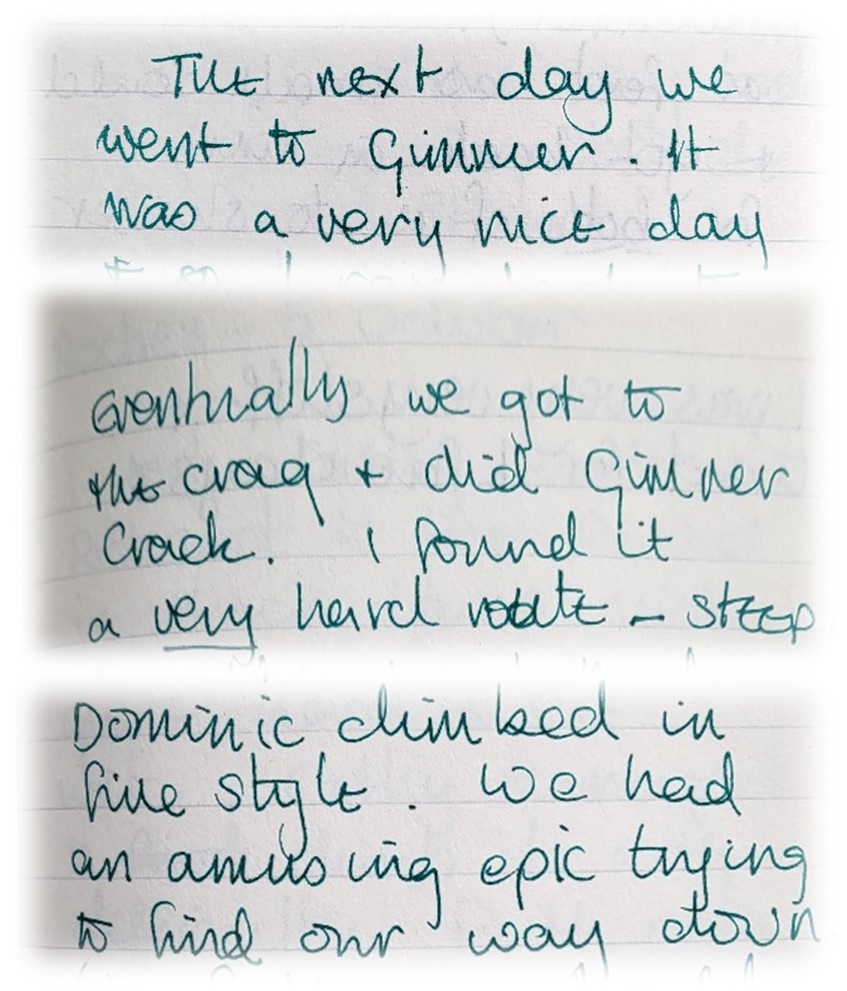 The next day we
went to Gimmer. It
was a very nice day
Eventually we got to
the crag + did Gimmer
Crack. I found it
a very hard route – steep
Dominic climbed in
fine style. We had
an amusing epic trying
to find our way down